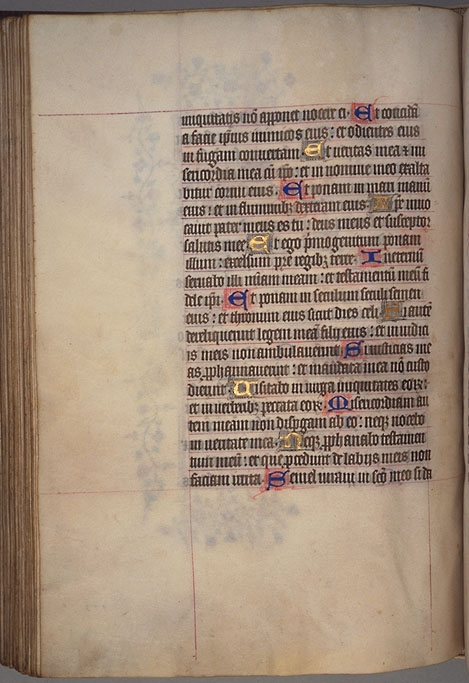 iniquitatis nō apponet nocere ei. Et concidā
a facie ipsius inimicos eius : et odientes eius
in fugam convertam. Et veritas mea ⁊ mi
sericordia mea cū ipo : et in nomine meo exalta
bitur cornu eius. Et ponam in mari manū
eius : et in fluminibꝫ dexteram eius. Ipe invo
cavit pater meus es tu : deus meus et susceptor
salutis mee. Et ego pmogenitum ponam
illum : excelsum pre regibꝫ terre. In eternū
servabo illi mīam meam : et testamentū meū fi
dele ipi. Et ponam in seculum seculi semen
eius : et thronum eius sicut dies celi. Si autē
dereliquerint legem meā filij eius : et in iudici
js meis non ambulaverint. Si iusticias me
as ꝓphanaverint : et mandata mea nō custo
dierint. Visitabo in virga iniquitates eorꝫ :
et in verberibꝫ peccata eorꝫ. Misericordiam au
tem meam non dispgam ab eo : neqꝫ nocebo
in veritate mea. Neqꝫ ꝓphanabo testamen
tum meū : et que ꝓcedunt de labijs meis non
faciam irrita. Semel iuravi in scō meo si da